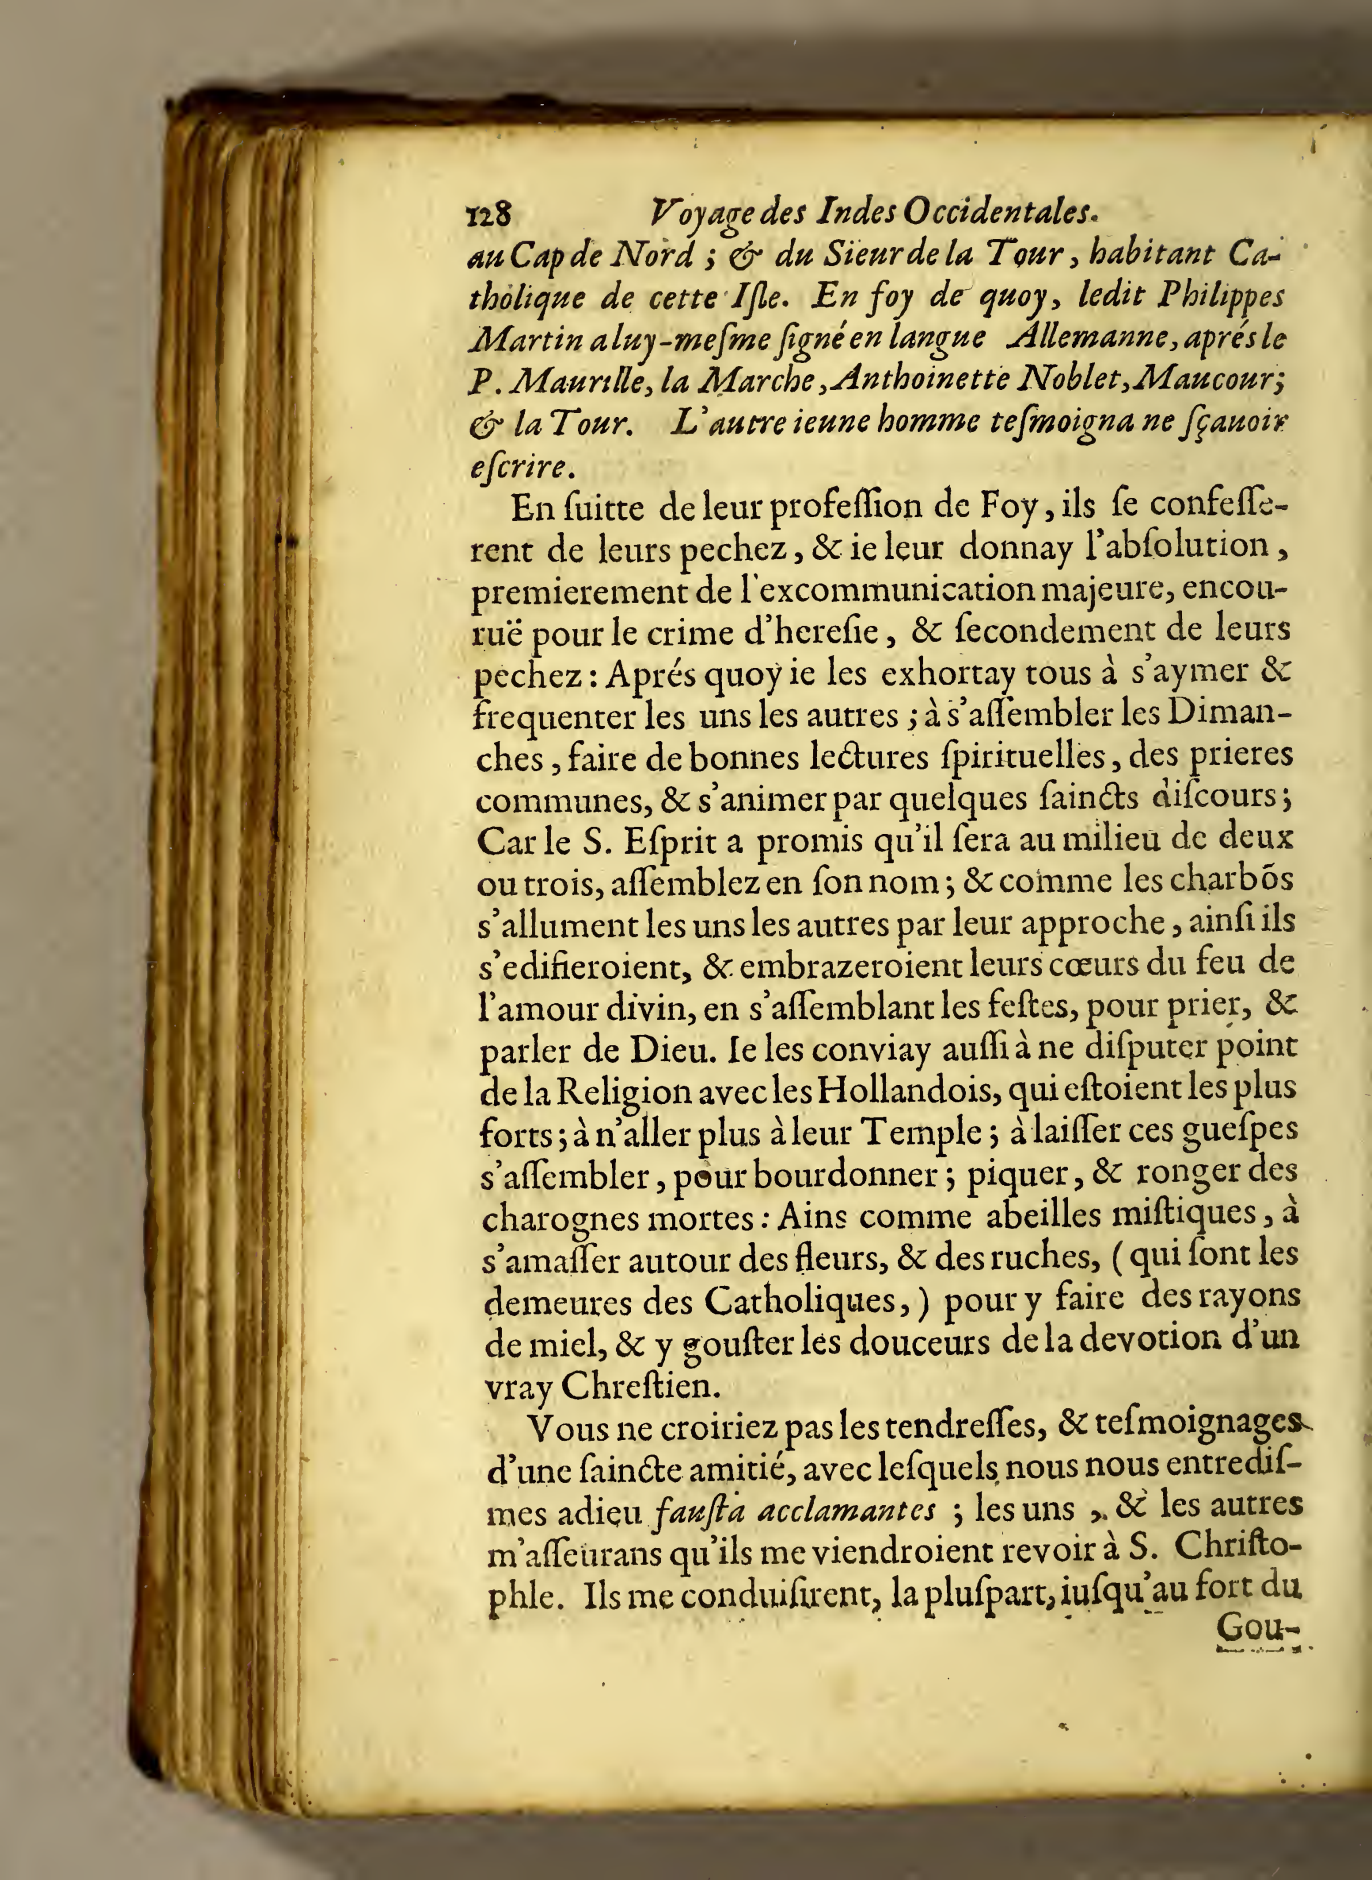 128 Voyage des Indes Occidentales.
au Cap de Nord ; & du Sieur de la Tour, habitant Ca-
tholique de cette Iſle. En foy de quoy, ledit Philippes
Martin a luy-meſme ſigné en langue Allemanne, aprés le
P. Maurille, la Marche, Anthoinette Noblet, Maucour;
& la Tour. L'autre ieune homme teſmoigna ne ſçauoir
eſcrire.
En ſuitte de leur profeſſion de Foy, ils ſe confeſſe-
rent de leurs pechez, & ie leur donnay l'abſolution,
premierement de l'excommunication majeure, encou-
ruë pour le crime d'hereſie, & ſecondement de leurs
pechez : Aprés quoy ie les exhortay tous à s'aymer &
frequenter les uns les autres ; à s'aſſembler les Diman-
ches, faire de bonnes lectures ſpirituelles, des prieres
communes, & s'animer par quelques ſaincts diſcours ;
Car le S. Eſprit a promis qu'il ſera au milieu de deux
ou trois, aſſemblez en ſon nom ; & comme les charbõs
s'allument les uns les autres par leur approche, ainſi ils
s'edifieroient, & embrazeroient leurs cœurs du feu de
l'amour divin, en s'aſſemblant les feſtes, pour prier, &
parler de Dieu. Ie les conviay auſſi à ne diſputer point
de la Religion avec les Hollandois, qui eſtoient les plus
forts ; à n'aller plus à leur Temple ; à laiſſer ces gueſpes
s'aſſembler, pour bourdonner ; piquer, & ronger des
charognes mortes : Ains comme abeilles miſtiques, à
s'amaſſer autour des fleurs, & des ruches, ( qui ſont les
demeures des Catholiques, ) pour y faire des rayons
de miel, & y gouſter les douceurs de la devotion d'un
vray Chreſtien.
Vous ne croiriez pas les tendreſſes, & teſmoignages
d'une ſaincte amitié, avec leſquels nous nous entrediſ-
mes adieu fauſta acclamantes ; les uns, & les autres
m'aſſeurans qu'ils me viendroient revoir à S. Chriſto-
phle. Ils me conduiſirent, la pluſpart, iuſqu'au fort du
Gou-